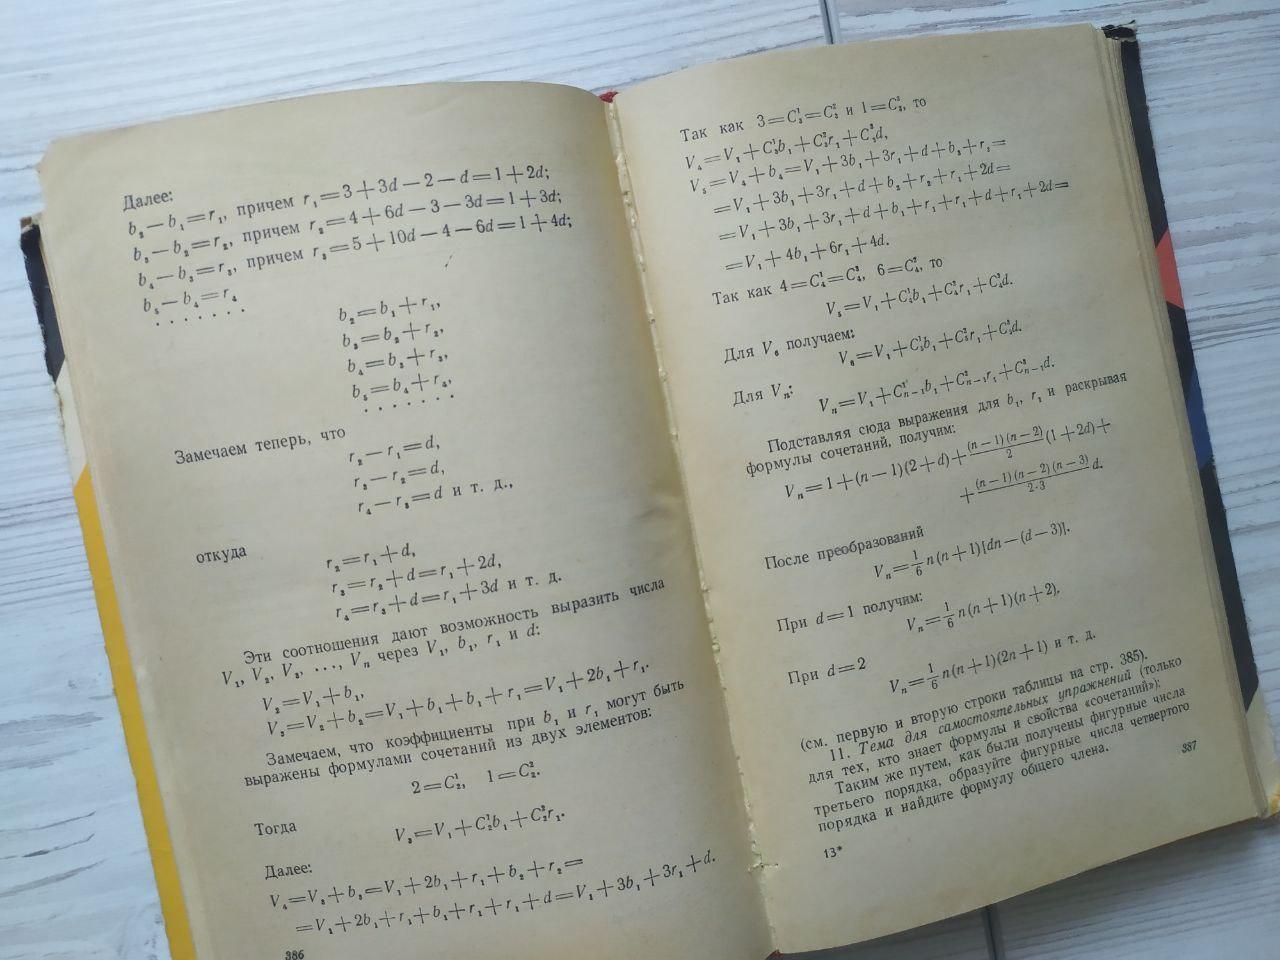 Далее:
b₂ — b₁ = r₁, причем r₁ = 3 + 3d — 2 — d = 1 + 2d;
b₃ — b₂ = r₂, причем r₂ = 4 + 6d — 3 — 3d = 1 + 3d;
b₄ — b₃ = r₃, причем r₃ = 5 + 10d — 4 — 6d = 1 + 4d;
b₅ — b₄ = r₄
. . . . . . .
b₂ = b₁ + r₁,
b₃ = b₂ + r₂,
b₄ = b₃ + r₃,
b₅ = b₄ + r₄,
. . . . . . .
Замечаем теперь, что
r₂ — r₁ = d,
r₃ — r₂ = d,
r₄ — r₃ = d и т. д.,
откуда
r₂ = r₁ + d,
r₃ = r₂ + d = r₁ + 2d,
r₄ = r₃ + d = r₁ + 3d и т. д.
Эти соотношения дают возможность выразить числа
V₁, V₂, V₃, ..., Vₙ через V₁, b₁, r₁ и d:
V₂ = V₁ + b₁,
V₃ = V₂ + b₂ = V₁ + b₁ + b₁ + r₁ = V₁ + 2b₁ + r₁.
Замечаем, что коэффициенты при b₁ и r₁ могут быть
выражены формулами сочетаний из двух элементов:
2 = C₂¹, 1 = C₂².
Тогда
V₃ = V₁ + C₂¹b₁ + C₂²r₁.
Далее:
V₄ = V₃ + b₃ = V₁ + 2b₁ + r₁ + b₂ + r₂ =
= V₁ + 2b₁ + r₁ + b₁ + r₁ + r₁ + d = V₁ + 3b₁ + 3r₁ + d.
386
Так как 3 = C₃¹ = C₃² и 1 = C₃³, то
V₄ = V₁ + C₃¹b₁ + C₃²r₁ + C₃³d,
V₅ = V₄ + b₄ = V₁ + 3b₁ + 3r₁ + d + b₃ + r₃ =
= V₁ + 3b₁ + 3r₁ + d + b₂ + r₂ + r₁ + 2d =
= V₁ + 3b₁ + 3r₁ + d + b₁ + r₁ + r₁ + d + r₁ + 2d =
= V₁ + 4b₁ + 6r₁ + 4d.
Так как 4 = C₄¹ = C₄³, 6 = C₄², то
V₅ = V₁ + C₄¹b₁ + C₄²r₁ + C₄³d.
Для V₆ получаем:
V₆ = V₁ + C₅¹b₁ + C₅²r₁ + C₅³d.
Для Vₙ:
Vₙ = V₁ + C¹ₙ₋₁b₁ + C²ₙ₋₁r₁ + C³ₙ₋₁d.
Подставляя сюда выражения для b₁, r₁ и раскрывая
формулы сочетаний, получим:
Vₙ = 1 + (n — 1)(2 + d) + (n — 1)(n — 2)/2 (1 + 2d) +
+ (n — 1)(n — 2)(n — 3)/2·3 d.
После преобразований
Vₙ = 1/6 n(n + 1)[dn — (d — 3)].
При d = 1 получим:
Vₙ = 1/6 n(n + 1)(n + 2).
При d = 2
Vₙ = 1/6 n(n + 1)(2n + 1) и т. д.
(см. первую и вторую строки таблицы на стр. 385).
11. Тема для самостоятельных упражнений (только
для тех, кто знает формулы и свойства «сочетаний»):
Таким же путем, как были получены фигурные числа
третьего порядка, образуйте фигурные числа четвертого
порядка и найдите формулу общего члена.
13*
387